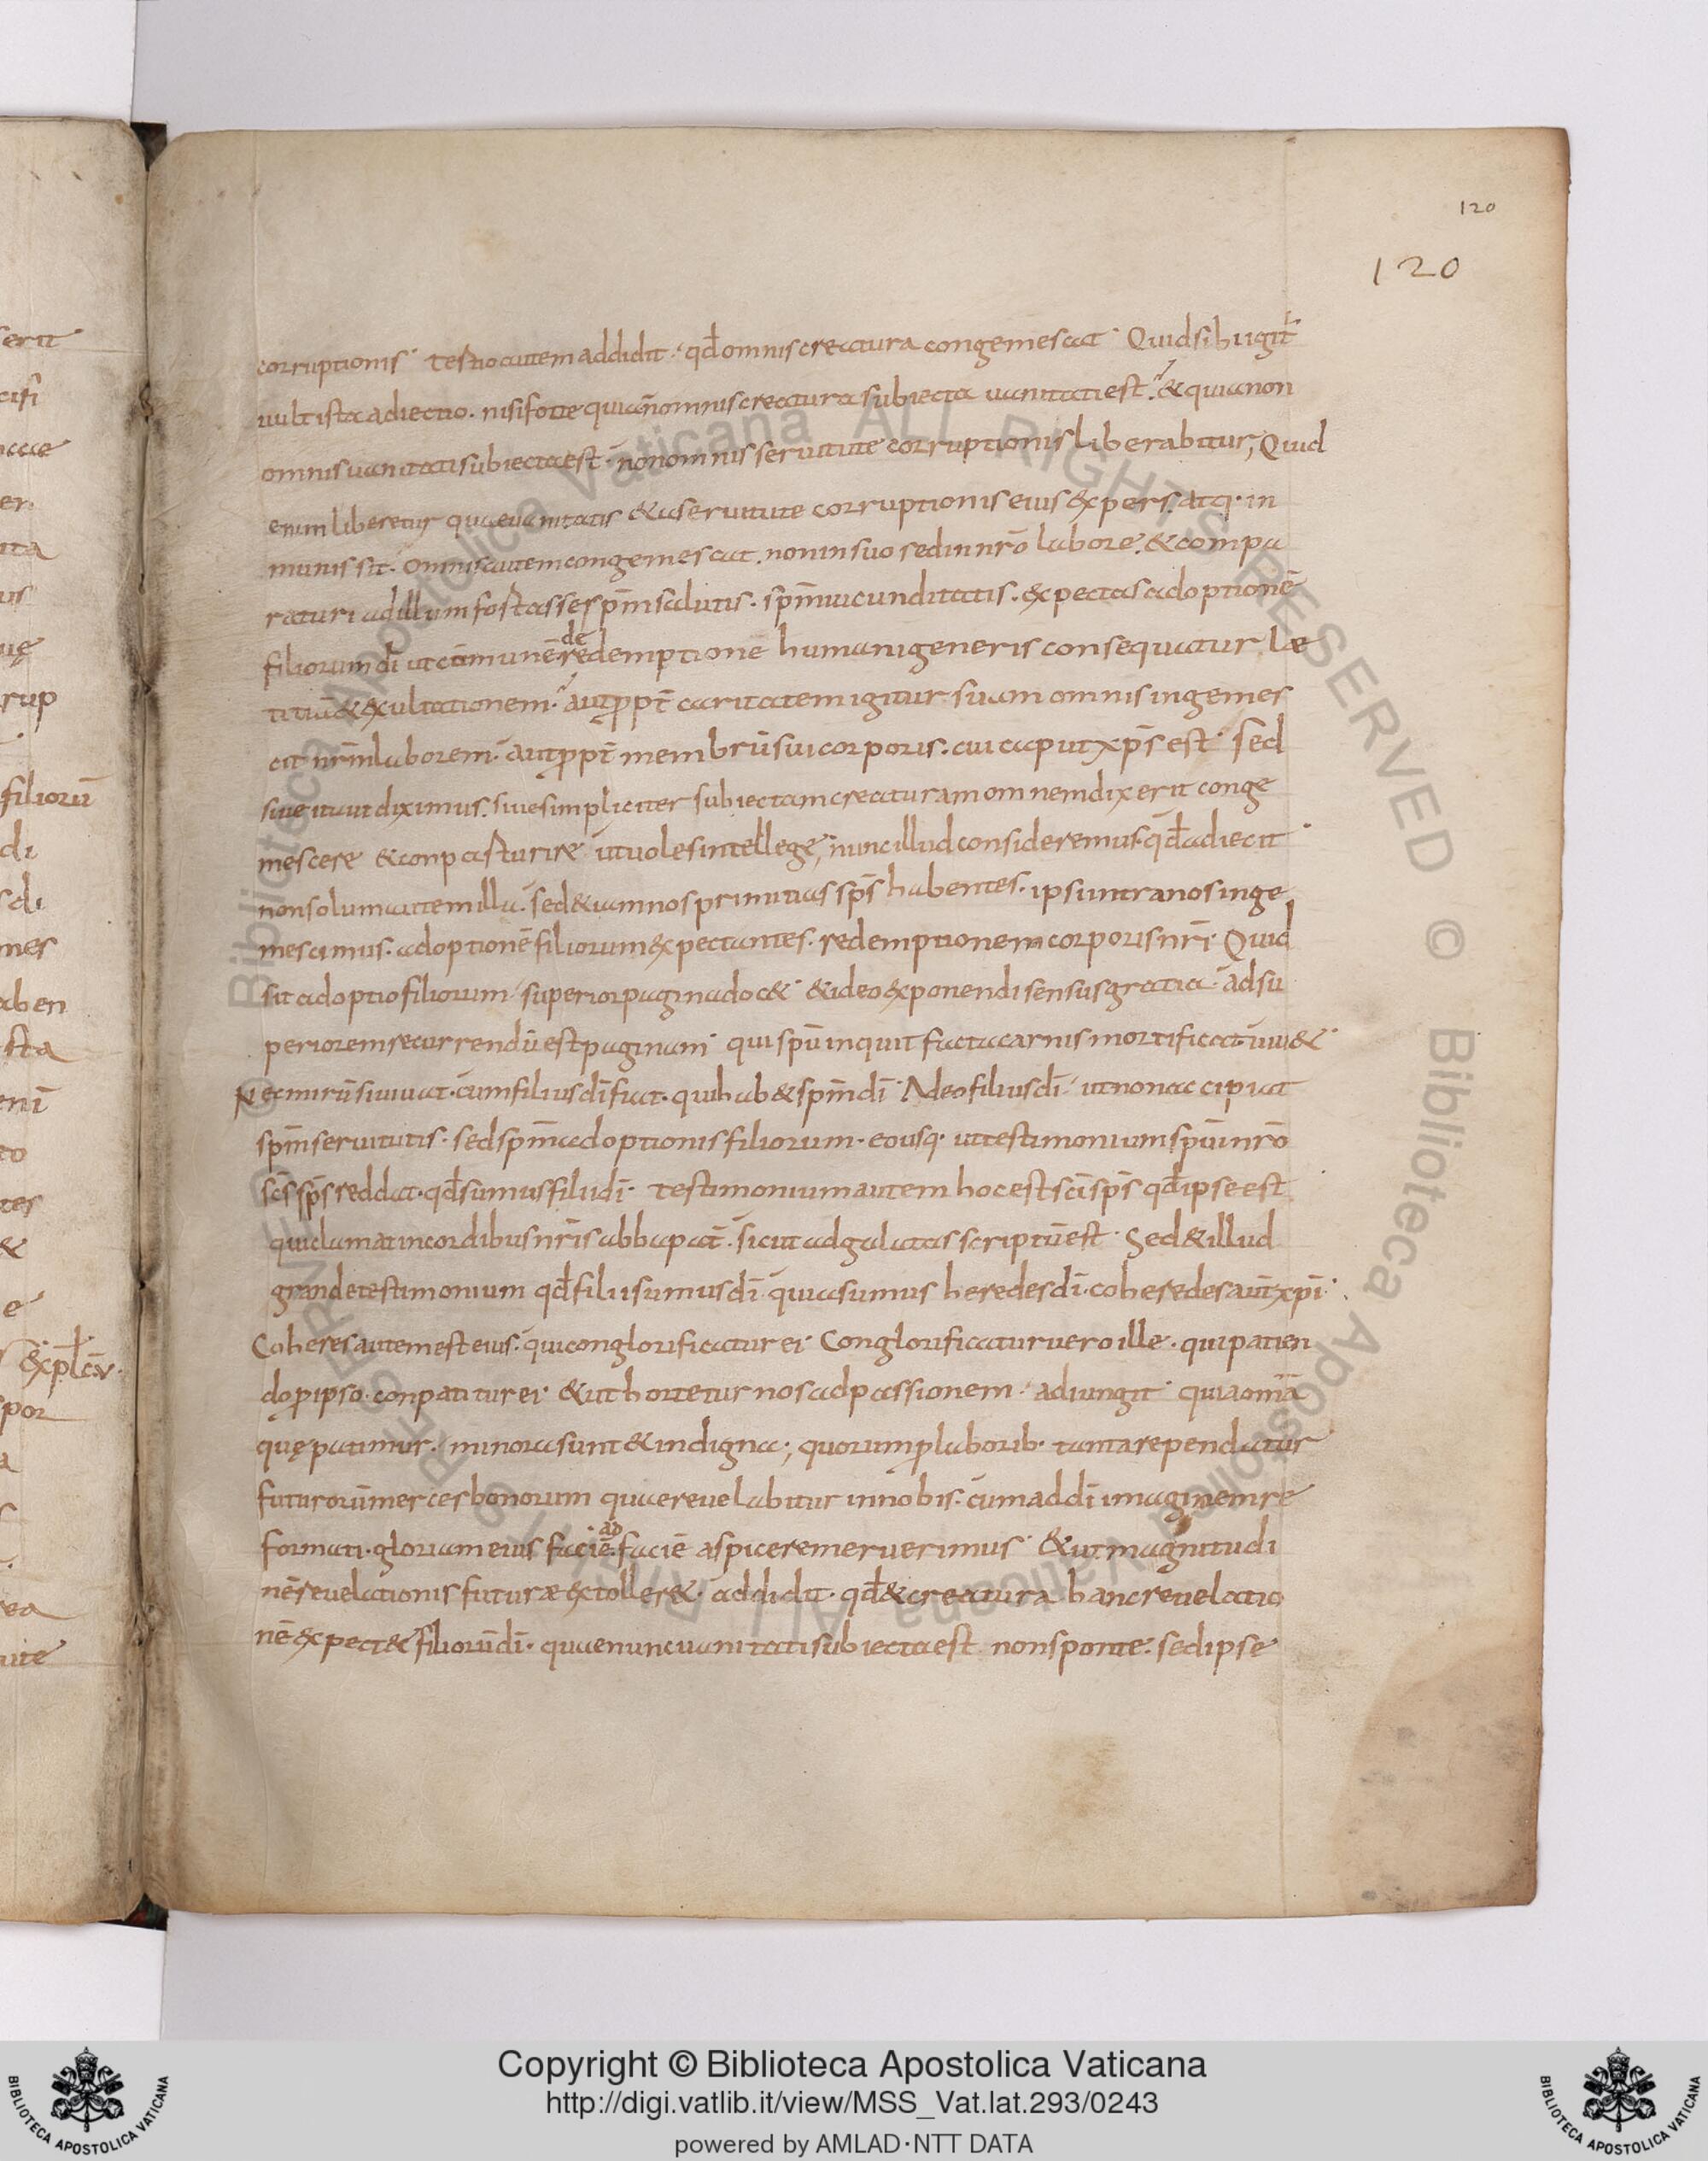 120
120
corruptionis· Tertio autem addidit· qđ omnis creatura congemescat· Quid sibi igit̄
uult ista adiectio. nisi forte quia n̄ omnis creatura subiecta uanitati est. & quia non
omnis uanitati subiecta est· non omnis seruitute corruptionis liberabitur; Quid
enim liberetur quae uanitatis & a seruitute corruptionis eius expers. atq· in
munis sit. Omnis autem congemescat. non in suo sed in nrō labore. & compa
raturi ad illum fortasse sp̄m salutis. sp̄m iucunditatis. expectas adoptionē
filiorum dī ut cōmunē de redemptione humani generis consequatur læ
titiā & exultationem. aut ppt̄ caritatem igitur suam omnis ingemes
cit nrm̄ laborem. aut ppt̄ membrū sui corporis. cui caput xp̄s est· sed
siue ita ut diximus. siue simpliciter subiectam creaturam omnem dixerit conge
mescere & conparturire ut uoles intellege; nunc illud consideremus qđ adiecit·
non solum autem illa. sed & iam nos primitias sp̄s habentes. ipsi intra nos inge
mescimus. adoptionē filiorum expectantes. redemptionem corporis nrī· Quid
sit adoptio filiorum superior pagina doc&· & ideo exponendi sensus gratia· ad su
periorem recurrendū est paginam· qui spū inquit facta carnis mortificat· uiu&·
Nec mirū si uiuat. cum filius dī fiat. qui hab& sp̄m dī· Adeo filius dī· ut non accipiat
sp̄m seruitutis. sed sp̄m adoptionis filiorum. eousq· ut testimonium spūi nrō
scs̄ sp̄s reddat. qđ sumus filii dī· testimonium autem hoc est scī sp̄s qđ ipse est
qui clamat in cordibus nrīs abba pat̄. sicut ad galatas scriptū est· Sed & illud
grande testimonium qđ filii sumus dī quia sumus heredes dī. coheredes aut̄ xp̄i·
Coheres autem est eius. qui conglorificatur ei· Conglorificatur uero ille. qui patien
do p ipso. conpatitur ei· & ut hortetur nos ad passionem· adiungit· quia omīa
quę patimur. minora sunt & indigna; quorum p laborib· tanta rependatur
futurorū merces bonorum quae reuelabitur in nobis. cum ad dī imaginem re
formati. gloriam eius faciē ad faciē aspicere meruerimus· & ut magnitudi
nē reuelationis futuræ extoller&. addidit. qđ & creatura hanc reuelatio
nē expect& filiorū dī. quae nunc uanitati subiecta est non sponte. sed ipse
Copyright © Biblioteca Apostolica Vaticana
http://digi.vatlib.it/view/MSS_Vat.lat.293/0243
powered by AMLAD·NTT DATA